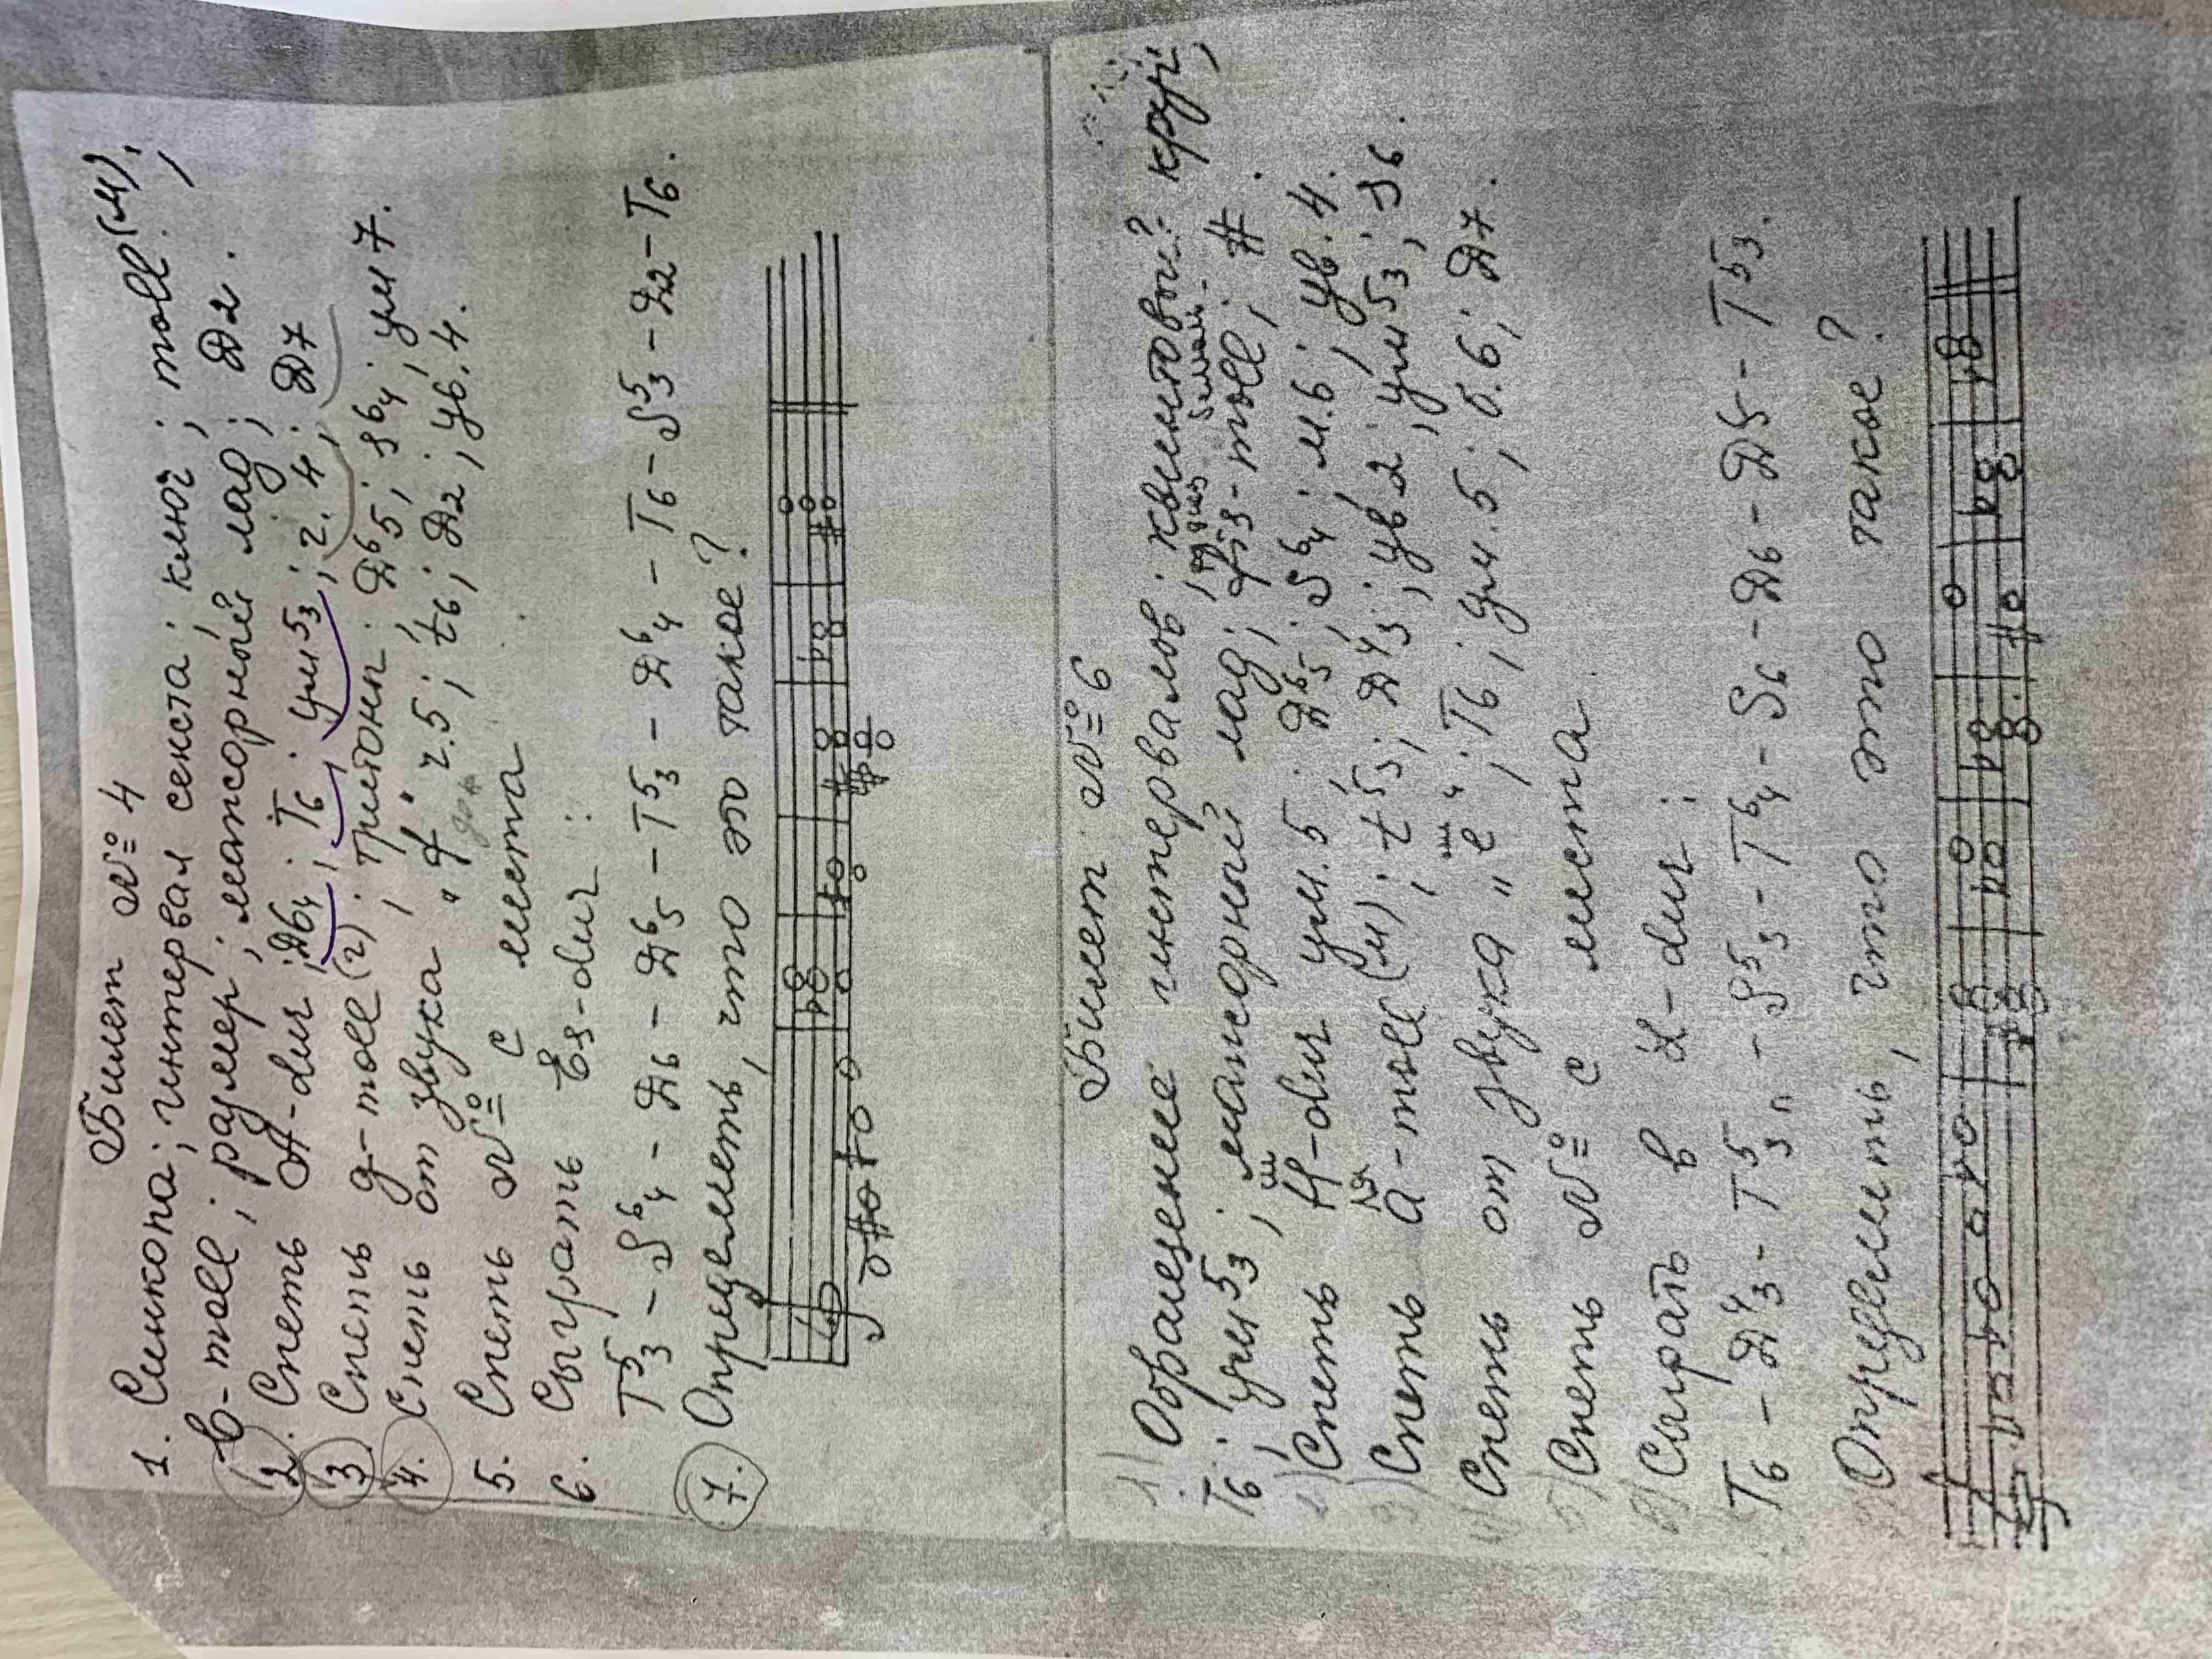 Билет № 4
1. Синкопа; интервал секста; ключ; moll (м);
b-moll; размер; мажорный лад; Д2.
2. Спеть A-dur; Д6/4; T6; ум5/3; ч.4; Д7
3. Спеть g-moll (г); тритоны; Д6/5; s6/4; ум7.
4. Спеть от звука "d" ч.5; t6; Д2; ув.4.
5. Спеть № с листа
6. Сыграть Es-dur:
T5/3 - S6/4 - Д6 - Д6/5 - T5/3 - Д6/4 - T6 - S5/3 - Д2 - T6.
7. Определить, что это такое?
Билет № 6
1) Обращение интервалов; квинтовый круг;
T6; ум5/3; мажорный лад; fis-moll; #.
2) Спеть H-dur ум.5; Д6/5; S6/4; м.6; ув.4.
си
3) Спеть a-moll (м); t5/3; Д4/3; ув.2; ум5/3; s6.
ля
4) Спеть от звука "e"; T6; ум.5; б.6; Д7.
ми
5) Спеть № с листа.
6) Сыграть в
T6 - Д4/3 - T5/3 - S5/3 - T6/4 - S6 - Д6 - T5/3.
Определить, что это такое?